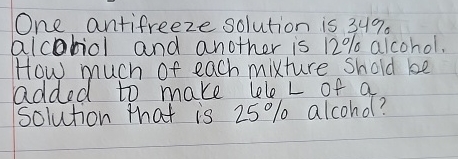 One antifreeze solution is 34%
alcohol and another is 12% alcohol.
How much of each mixture Shold be
added to make 66 L of a
Solution that is 25% alcohol?